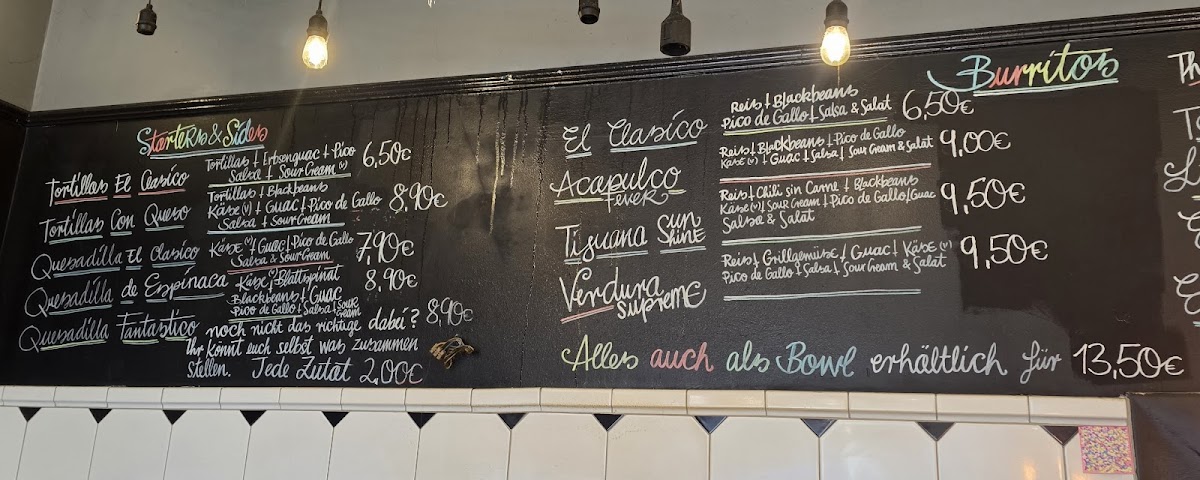 Starters & Sides
Tortillas El Clasico
Tortillas + Erbsenguac + Pico
Salsa + Sour Cream (v)
6,50€
Tortillas Con Queso
Tortillas + Blackbeans
Käse (v) + Guac + Pico de Gallo
Salsa + Sour Cream
8,90€
Quesadilla El Clasico
Käse (v) + Guac + Pico de Gallo
Salsa & Sour Cream
7,90€
Quesadilla de Espinaca
Käse (v) Blattspinat
8,90€
Blackbeans + Guac
Pico de Gallo + Salsa + Sour Cream
Quesadilla Fantastico
noch nicht das richtige dabei?
8,90€
Ihr könnt euch selbst was zusammen
stellen. Jede Zutat 2,00€
Burritos
El Clasico
Reis + Blackbeans
Pico de Gallo + Salsa & Salat
6,50€
Acapulco
Fever
Reis + Blackbeans + Pico de Gallo
Käse (v) + Guac + Salsa + Sour Cream & Salat
9,00€
Tijuana Sun
Shine
Reis + Chili sin Carne + Blackbeans
Käse (v) + Sour Cream + Pico de Gallo + Guac
Salsa & Salat
9,50€
Verdura
Supreme
Reis + Grillgemüse + Guac + Käse (v)
Pico de Gallo + Salsa + Sour Cream & Salat
9,50€
Alles auch als Bowl erhältlich für 13,50€